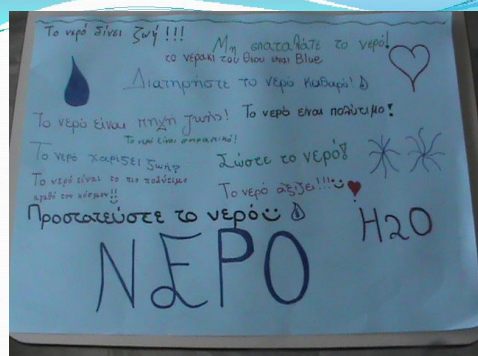 Το νερό δίνει ζωή!!!
Μη σπαταλάτε το νερό!
το νεράκι του Θεού είναι Blue
Διατηρήστε το νερό καθαρό!
Το νερό είναι πηγή ζωής!
Το νερό είναι πολύτιμο!
Το νερό είναι σημαντικό!
Το νερό χαρίζει ζωή
Σώστε το νερό!
Το νερό είναι το πιο πολύτιμο
αγαθό του κόσμου!!
Το νερό αξίζει!!!
Προστατεύστε το νερό
H2O
ΝΕΡΟ